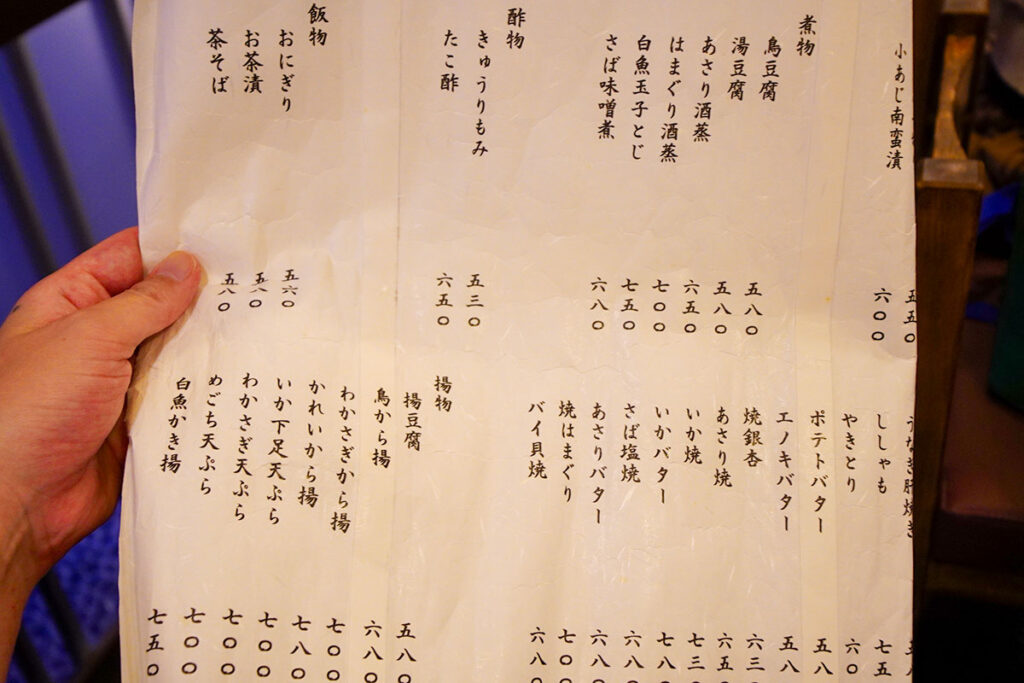 五五〇
小あじ南蛮漬 六〇〇
煮物
鳥豆腐 五八〇
湯豆腐 五八〇
あさり酒蒸 六五〇
はまぐり酒蒸 七〇〇
白魚玉子とじ 七五〇
さば味噌煮 六八〇
酢物
きゅうりもみ 五三〇
たこ酢 六五〇
飯物
おにぎり 五六〇
お茶漬 五八〇
茶そば 五八〇
うなぎ肝焼き
ししゃも 七五
やきとり 六〇
ポテトバター 五八
エノキバター 五八
焼銀杏 六三〇
あさり焼 六五〇
いか焼 七三〇
いかバター 七八〇
さば塩焼 六八〇
あさりバター 六八〇
焼はまぐり 七〇〇
バイ貝焼 六八〇
揚物
揚豆腐 五八〇
鳥から揚 六八〇
わかさぎから揚 七〇〇
かれいから揚 七八〇
いか下足天ぷら 七〇〇
わかさぎ天ぷら 七〇〇
めごち天ぷら 七〇〇
白魚かき揚 七五〇